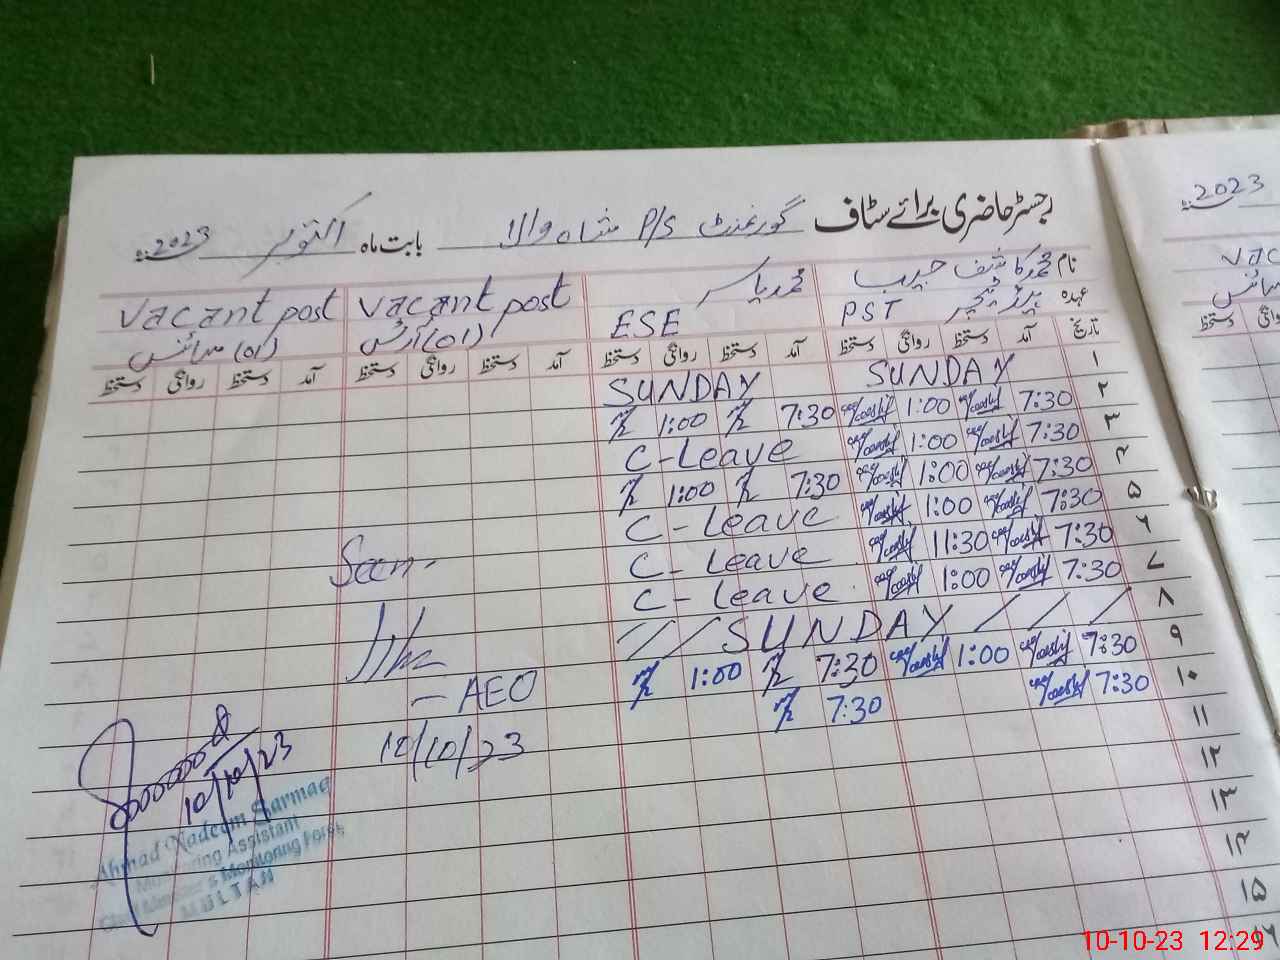 رجسٹر حاضری برائے سٹاف گورنمنٹ P/S شاہ والا بابت ماہ اکتوبر 2023ء
2023ء
نام محمد کاشف حبیب محمد یاسر vacant post vacant post
عہدہ PST ہیڈ ٹیچر ESE آرٹس (01) سائنس (01)
تاریخ آمد دستخط روانگی دستخط آمد دستخط روانگی دستخط آمد دستخط روانگی دستخط آمد دستخط روانگی دستخط
۱ SUNDAY SUNDAY
۲ 7:30 1:00 7:30 1:00
۳ 7:30 1:00 C-Leave
۴ 7:30 1:00 7:30 1:00
۵ 7:30 1:00 C-Leave
۶ 7:30 11:30 C-Leave
۷ 7:30 1:00 C-Leave
۸ SUNDAY
۹ 7:30 1:00 7:30 1:00
۱۰ 7:30 7:30
۱۱
۱۲
۱۳
۱۴
۱۵
۱۶
Seen
- AEO
10/10/23
10/10/23
Ahmad Nadeem Sarmad
Monitoring Assistant
Chief Minister's Monitoring Force
MULTAN
10-10-23 12:29